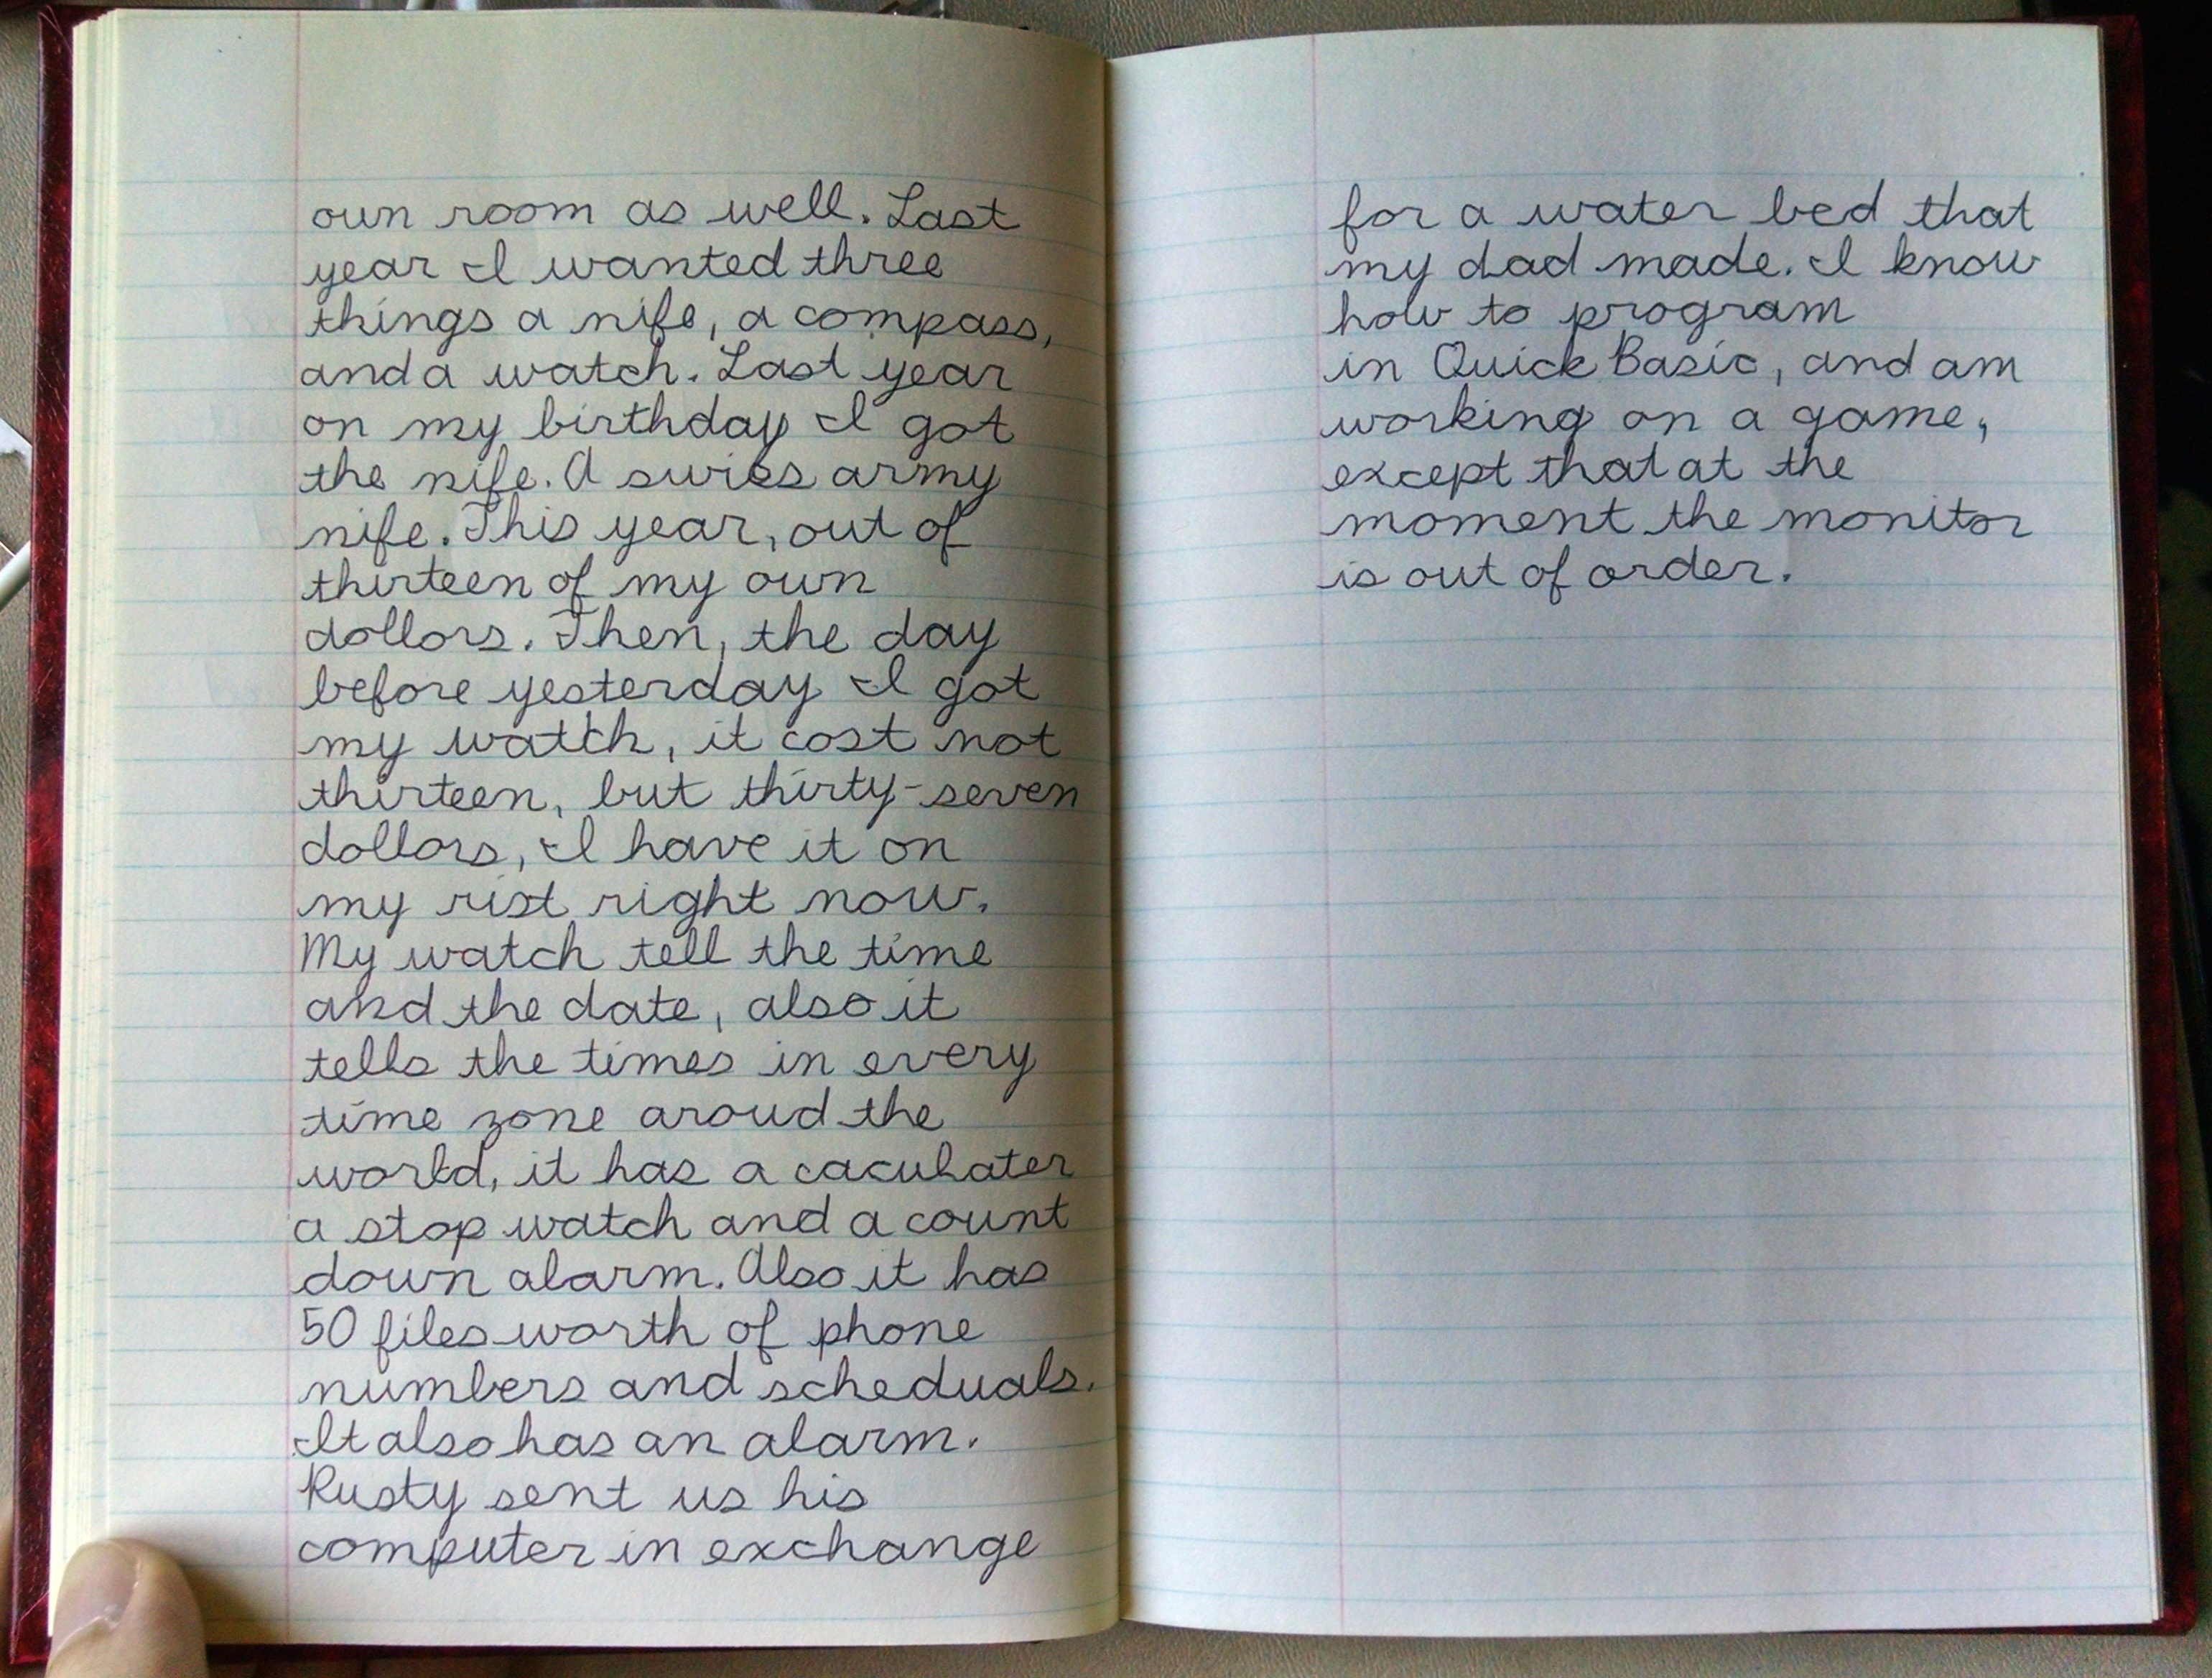 own room as well. Last
year I wanted three
things a nife, a compass,
and a watch. Last year
on my birthday I got
the nife. A swiss army
nife. This year, out of
thirteen of my own
dollors. Then, the day
before yesterday I got
my watch, it cost not
thirteen, but thirty-seven
dollors, I have it on
my rist right now.
My watch tell the time
and the date, also it
tells the times in every
time zone aroud the
world, it has a caculater
a stop watch and a count
down alarm. Also it has
50 files worth of phone
numbers and scheduals.
It also has an alarm.
Rusty sent us his
computer in exchange
for a water bed that
my dad made. I know
how to program
in Quick Basic, and am
working on a game,
except that at the
moment the monitor
is out of order.